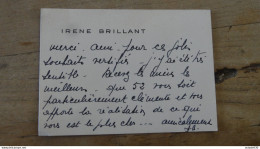 IRENE BRILLANT
merci, ami, pour ces jolis
souhaits versifiés. J'y ai été très
sensible. Recevez le mien le
meilleur, que 52 vous soit
particulièrement clémente et vous
apporte la réalisation de ce qui
vous est le plus cher... amicalement